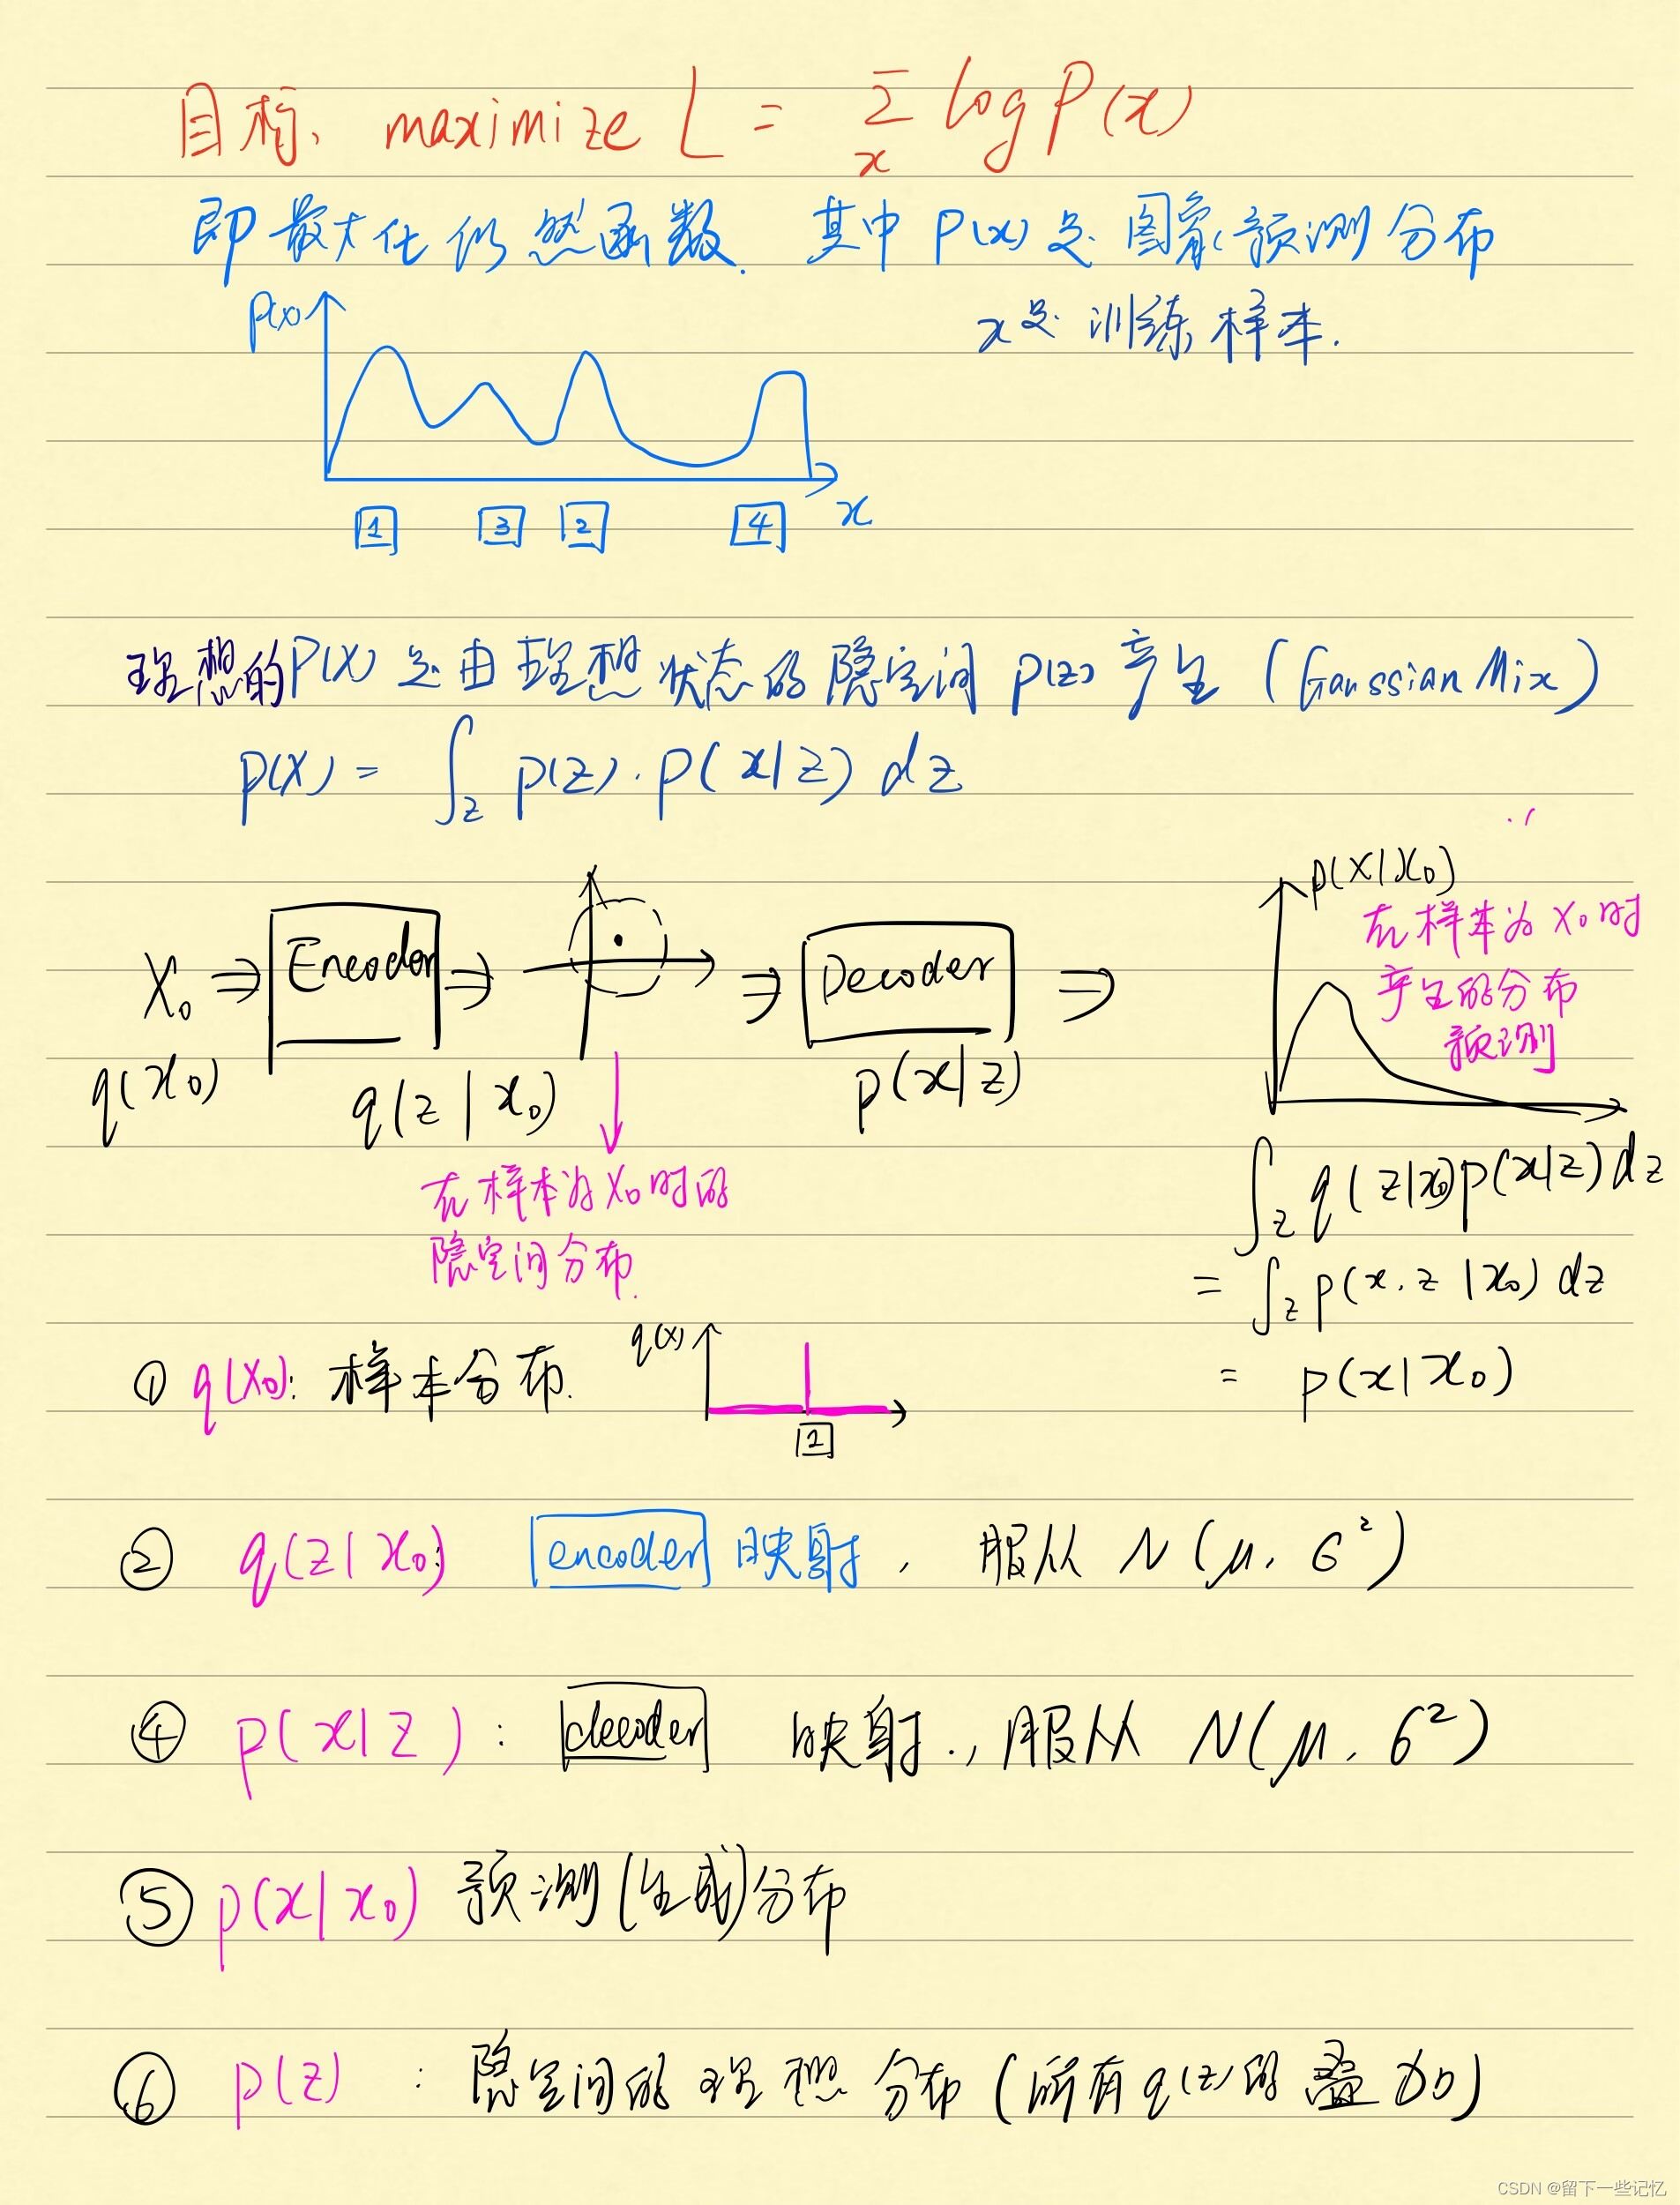 目标, maximize L = Σ_x log P(x)
即最大化似然函数. 其中 P(x) 是 图象预测分布
x是 训练样本.
p(x)
1 3 2 4 x
理想的P(X) 是由理想状态的隐空间 p(z) 产生 (Gaussian Mix)
p(X) = ∫_z p(z)·p(x|z) dz
p(X|X₀)
在样本为X₀时
产生的分布
预测
X₀ ⇒ Encoder ⇒ ⇒ Decoder ⇒
q(x₀) q(z|x₀) p(x|z)
在样本为X₀时的
隐空间分布.
∫_z q(z|x₀)p(x|z)dz
= ∫_z p(x,z|x₀) dz
= p(x|x₀)
① q(X₀): 样本分布. q(x)
2
② q(z|x₀): encoder 映射, 服从 N(μ, σ²)
④ p(x|z): decoder 映射., 服从 N(μ, σ²)
⑤ p(x|x₀) 预测(生成)分布
⑥ p(z) : 隐空间的理想分布(所有q(z)的叠加)
CSDN @留下一些记忆